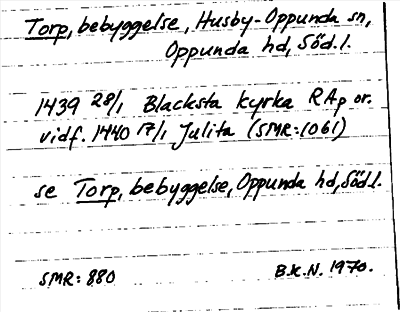 Torp, bebyggelse, Husby-Oppunda sn,
Oppunda hd, Söd.l.
1439 28/1 Blacksta kyrka RAp or.
vidf. 1440 17/1 Julita (SMR:1061)
se Torp, bebyggelse, Oppunda hd, Söd.l.
SMR: 880
B.K.N. 1970.